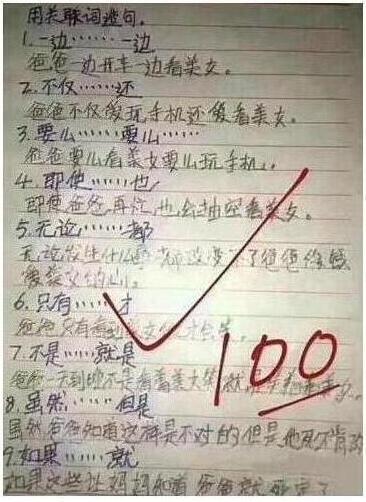 用关联词造句。
1.一边……一边
爸爸一边开车一边看美女。
2.不仅……还
爸爸不仅爱玩手机还爱看美女。
3.要么……要么……
爸爸要么看美女要么玩手机。
4.即使……也
即使爸爸再忙,也会抽空看美女。
5.无论……都
无论发生什么 都改变不了爸爸
爱美女的心。
6.只有……才
爸爸只有看到美女 才会笑。
7.不是……就是
爸爸一天到晚不是看着美女笑 就是
8.虽然……但是
虽然爸爸知道这样是不对的但是他死不肯改
9.如果……就
如果这些让妈妈知道 爸爸就死定了
100